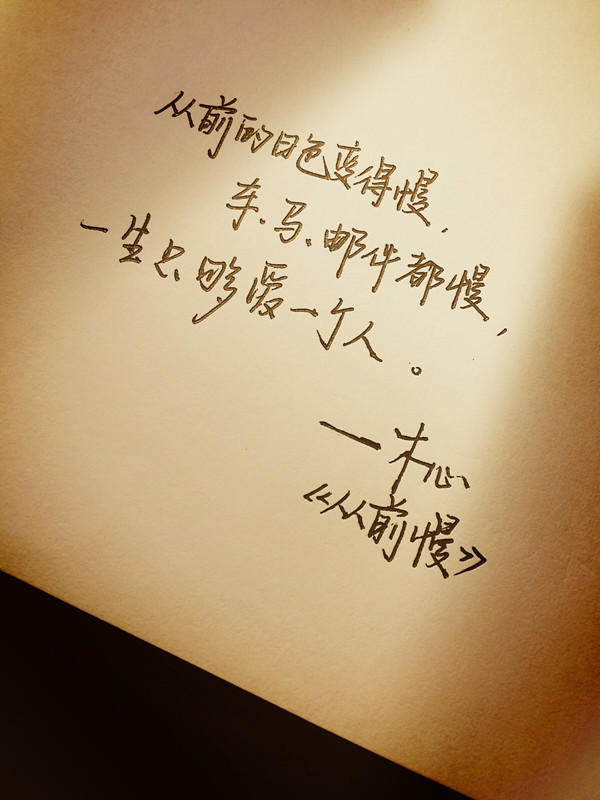 从前的日色变得慢，
车、马、邮件都慢，
一生只够爱一个人。
一木心
《从前慢》